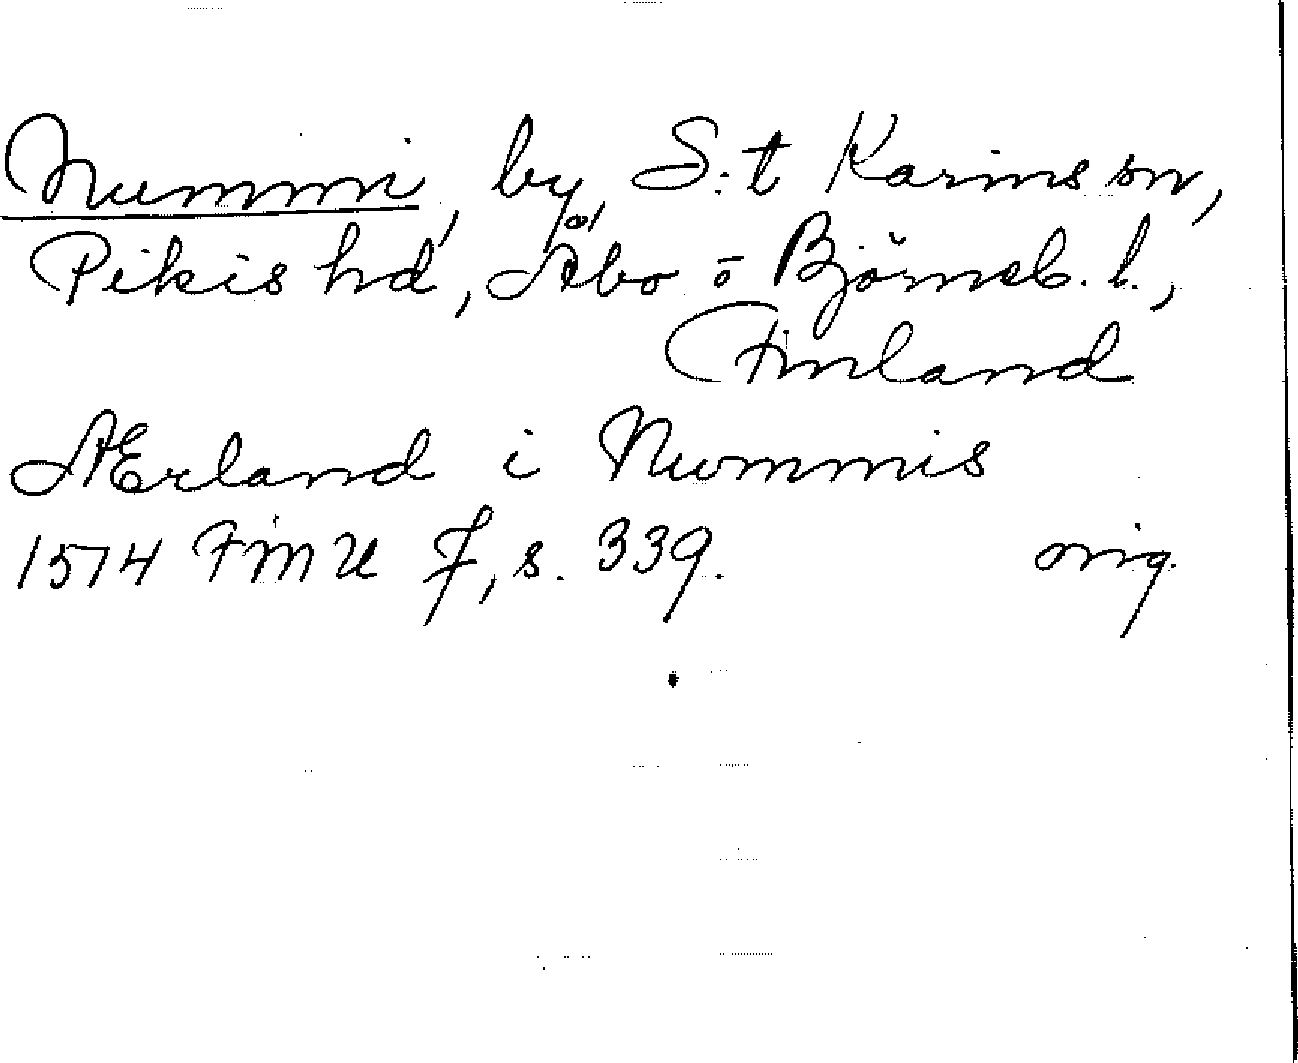 Nummi, by, S:t Karins sn,
Pikis hd, Åbo o Björneb. l.,
Finland
Ærland i Nummis
1514 FMU 7, s. 339. orig.